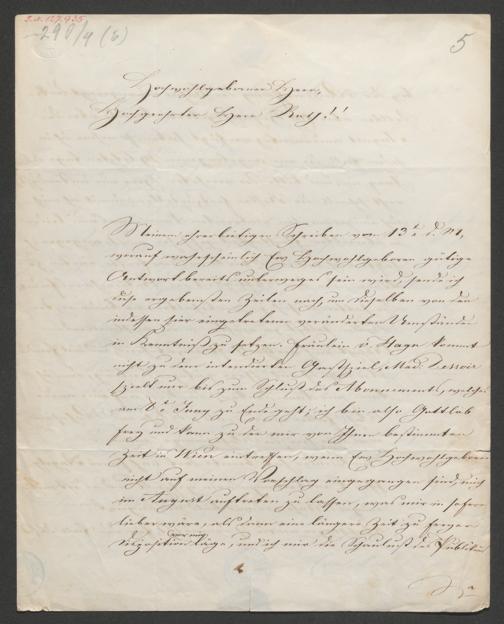 I.N. 127.935
290/4 (8)
5
Hochwohlgeborner Herr,
Hochgeehrter Herr Rath!!
Meinem ehrerbietigen Schreiben vom 13t. d. M.,
worauf wahrscheinlich Ew Hochwohlgeboren gütige
Antwort bereits unterweges sein wird, sende ich
diese ergebensten Zeilen nach, um dieselben von den
indessen hier eingetretenen veränderten Umständen
in Kenntniß zu setzen. Fräulein v. Hagn kommt
nicht zu dem intendirten Gastspiel, Mad. Dessoir
spielt nur bis zum Schluß des Abonnements, welches
am 8t. Juny zu Ende geht; ich bin also Gottlob
frey und kann zu der mir von Ihnen bestimmten
Zeit in Wien eintreffen, wenn Ew Hochwohlgeboren
nicht auf meinen Vorschlag eingegangen sind, mich
im August auftreten zu lassen, was mir in sofern
lieber wäre, als dann eine längere Zeit zu freyer
Disposition vor mir läge, und ich mir die Schaulust des Publikums